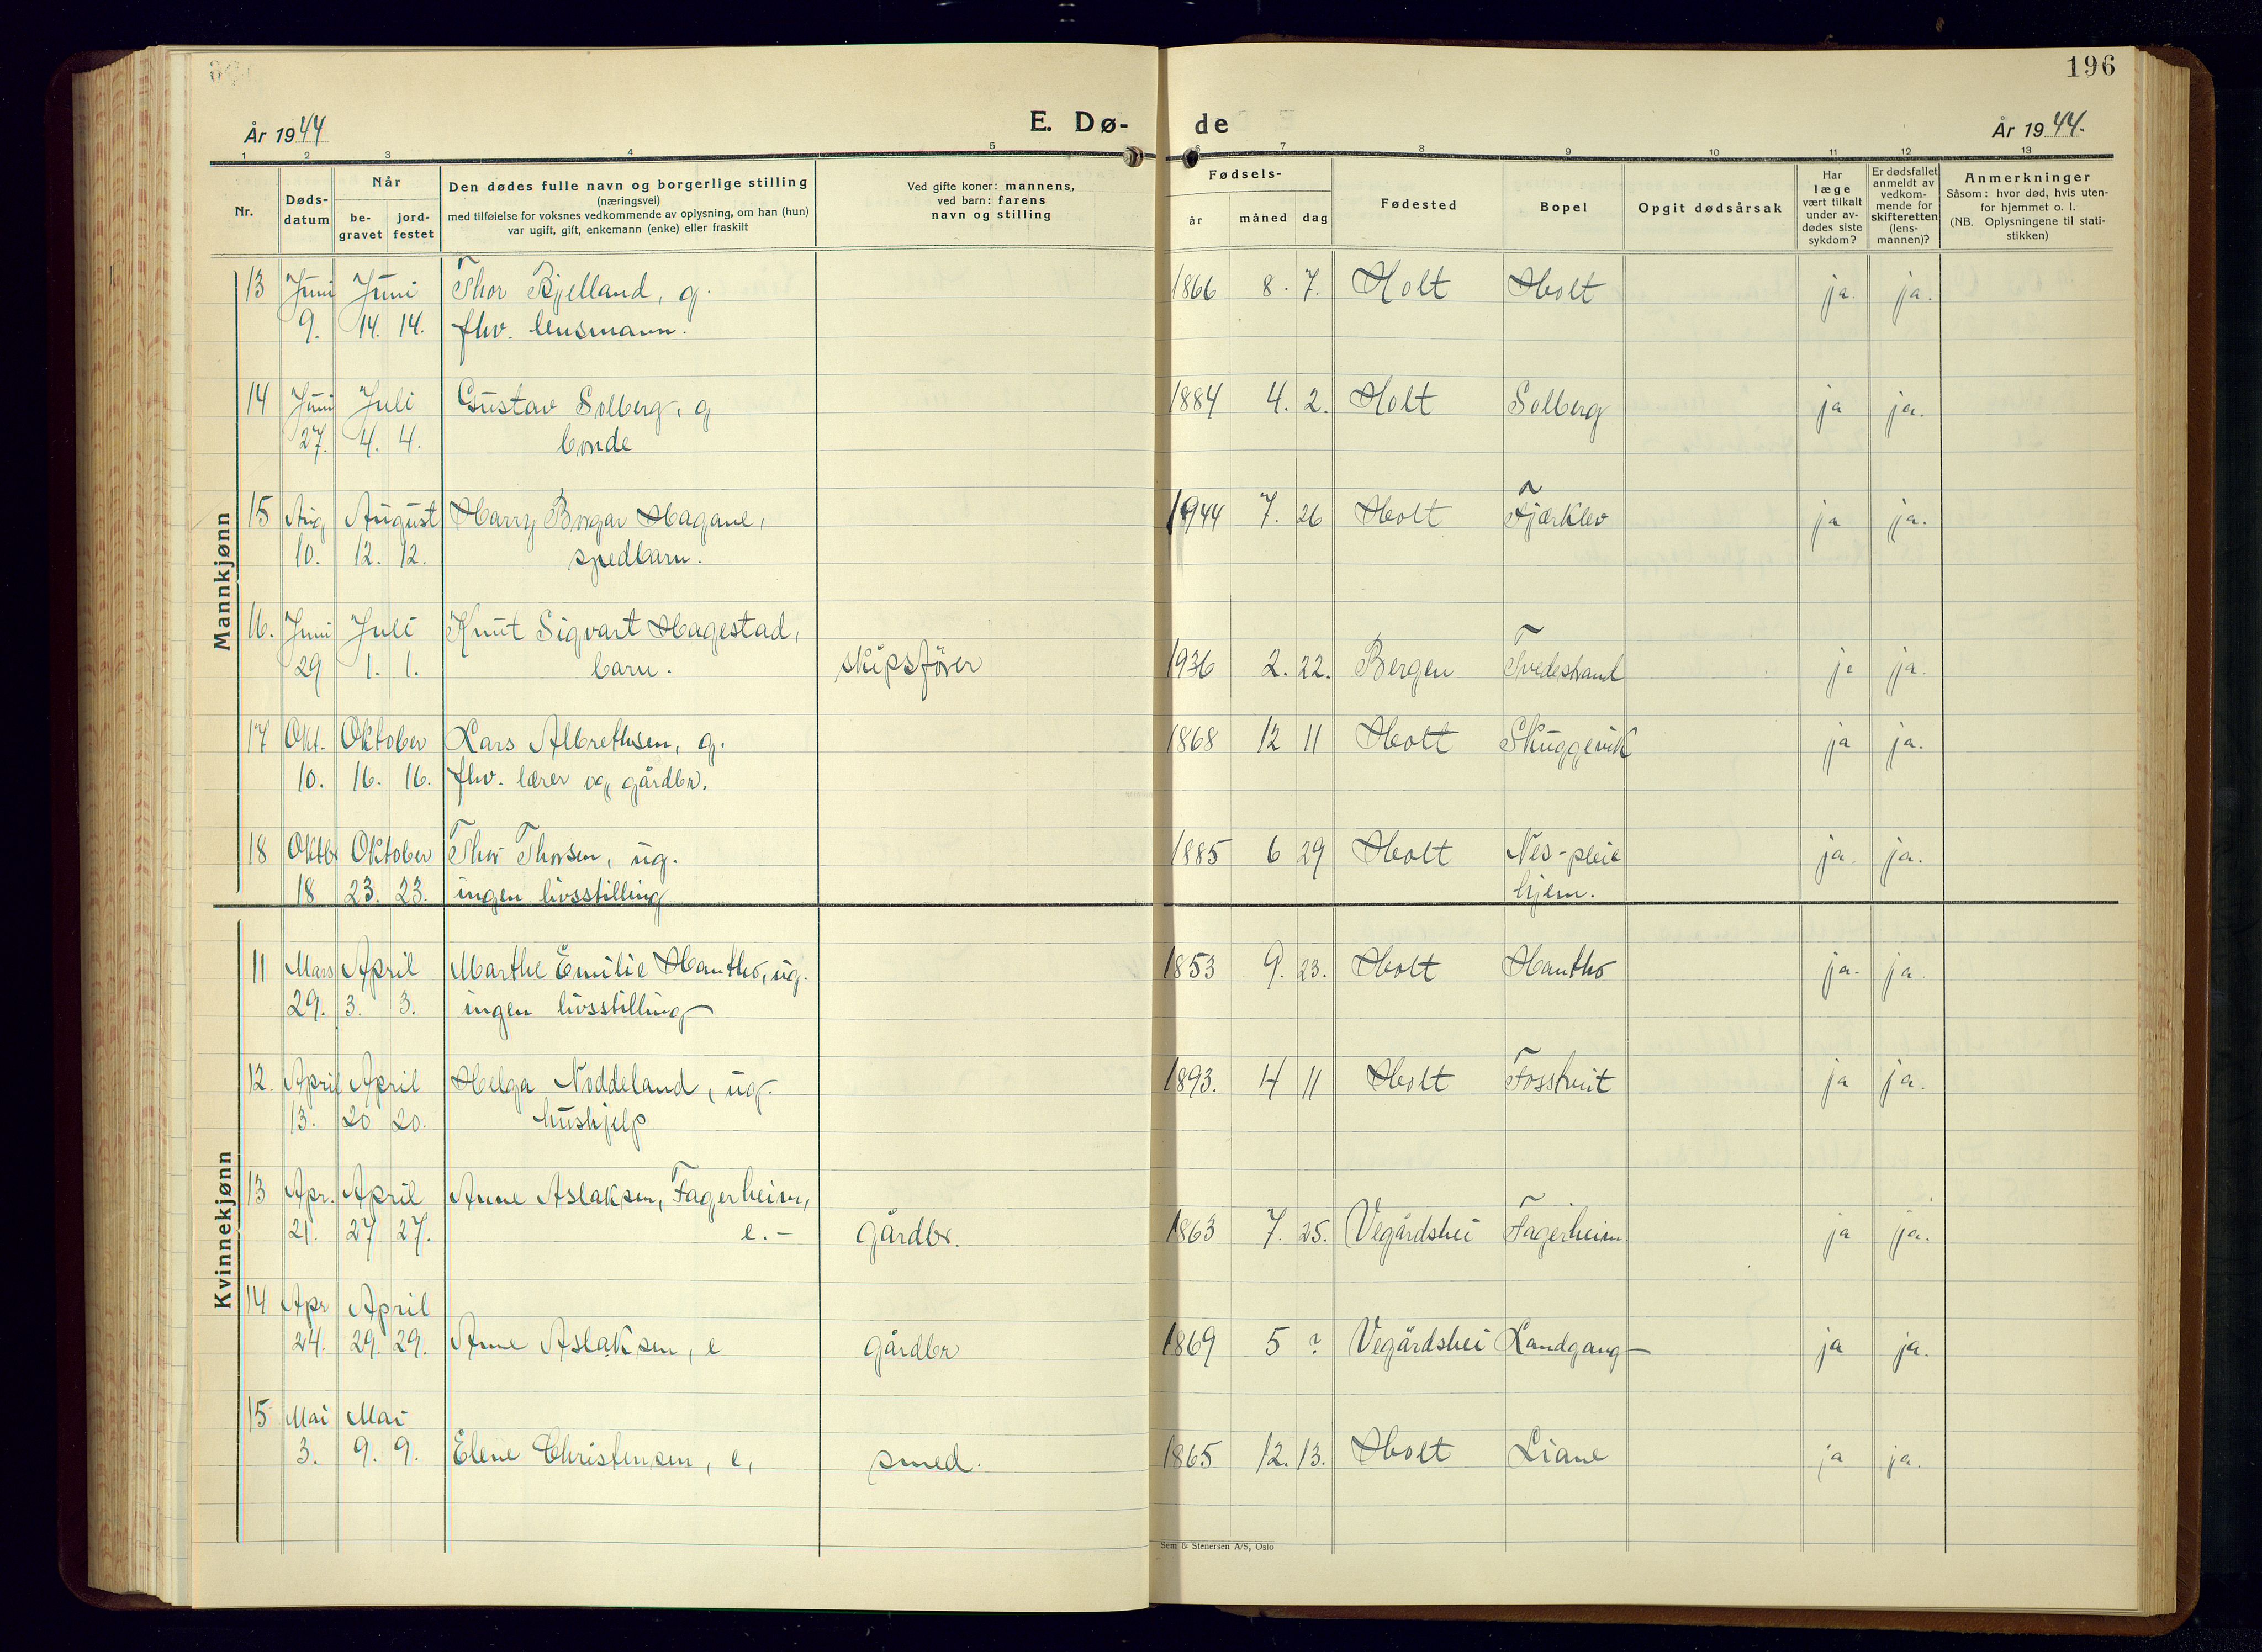 196
År 1944
E. Dø-
de
År 1944.
1 2 3 4 5 6 7 8 9 10 11 12 13
Nr.
Døds-
datum
Når
be-
gravet
jord-
festet
Den dødes fulle navn og borgerlige stilling
(næringsvei)
med tilføielse for voksnes vedkommende av oplysning, om han (hun)
var ugift, gift, enkemann (enke) eller fraskilt
Ved gifte koner: mannens,
ved barn: farens
navn og stilling
Fødsels-
år måned dag
Fødested
Bopel
Opgit dødsårsak
Har
læge
vært tilkalt
under av-
dødes siste
sykdom?
Er dødsfallet
anmeldt av
vedkom-
mende for
skifteretten
(lens-
mannen)?
Anmerkninger
Såsom: hvor død, hvis uten-
for hjemmet o. l.
(NB. Oplysningene til stati-
stikken)
Mannkjønn
13 Juni Juni Thor Bjelland, g. 1866 8. 7. Holt Holt ja. ja.
9. 14. 14. fhv. lensmann.
14 Juni Juli Gustav Solberg, g 1884 4. 2. Holt Solberg ja ja.
27. 4. 4. bonde
15 Aug August Harry Borgar Hagane, 1944 7. 26 Holt Fjærklev ja ja.
10. 12. 12. spedbarn.
16. Juni Juli Knut Sigvart Hagestad,
29 1. 1. barn. skipsfører 1936 2. 22. Bergen Tvedestrand ja ja.
17 Okt. Oktober Lars Albrethsen, g. 1868 12 11 Holt Skuggevik ja ja.
10. 16. 16. fhv. lærer og gårdbr.
18 Oktbr Oktober Thor Thorsen, ug. 1885 6 29 Holt Nes-pleie ja. ja.
18 23. 23. ingen livsstilling hjem.
Kvinnekjønn
11 Mars April Marthe Emilie Hantho, ug. 1853 9. 23. Holt Hantho ja. ja.
29. 3. 3. ingen livsstilling
12. April April Helga Noddeland, ug. 1893. 4 11 Holt Fosstveit ja ja.
13. 20 20. hushjelp
13 Apr. April Anne Aslaksen, Fagerheim,
21. 27 27. e. - gårdbr. 1863 7. 25. Vegårdshei Fagerheim ja ja.
14 Apr April
24. 29. 29. Anne Aslaksen, e gårdbr 1869 5 ? Vegårdshei Landgang ja ja.
15 Mai Mai
3. 9. 9. Elene Christensen, e, smed. 1865 12. 13. Holt Liane ja ja.
Sem & Stenersen A/S, Oslo